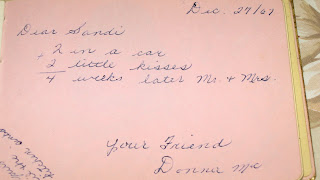 Dec. 27/67
Dear Sandi
2 in a car
+ 2 little kisses
4 weeks later Mr. & Mrs.
Your Friend
Donna Mc